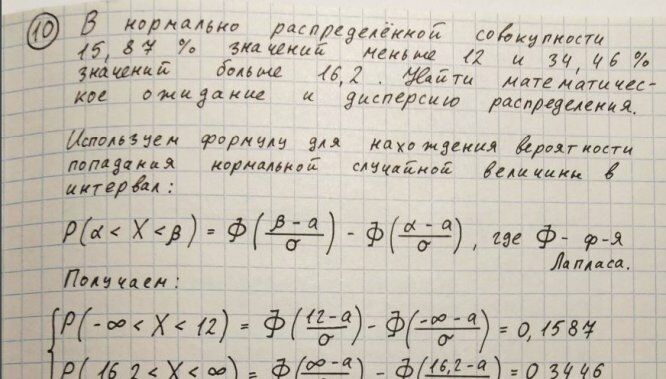 10 В нормально распределённой совокупности
15,87 % значений меньше 12 и 34,46 %
значений больше 16,2. Найти математичес-
кое ожидание и дисперсию распределения.
Используем формулу для нахождения вероятности
попадания нормальной случайной величины в
интервал:
P(α < X < β) = Ф((β-a)/σ) - Ф((α-a)/σ), где Ф - ф-я
Лапласа.
Получаем:
P(-∞ < X < 12) = Ф((12-a)/σ) - Ф((-∞-a)/σ) = 0,1587
P(16,2 < X < ∞) = Ф((∞-a)/σ) - Ф((16,2-a)/σ) = 0,3446